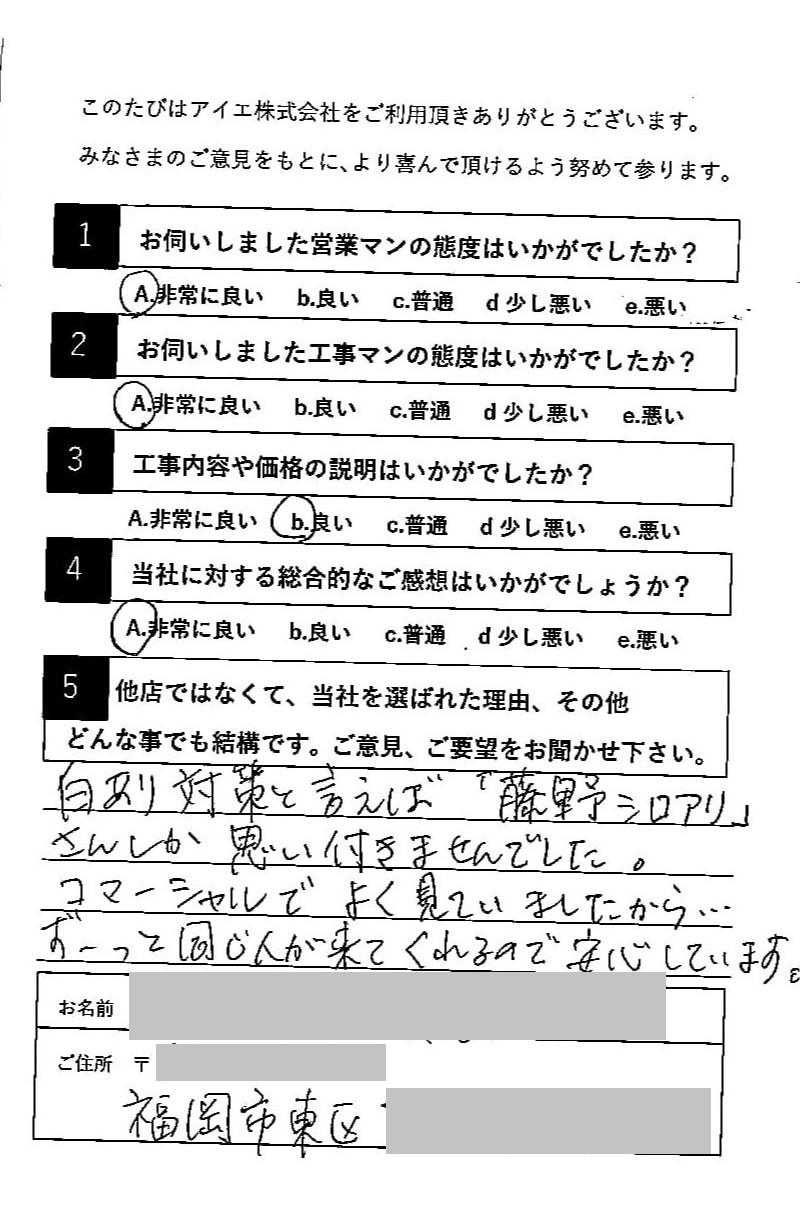 このたびはアイエ株式会社をご利用頂きありがとうございます。
みなさまのご意見をもとに、より喜んで頂けるよう努めて参ります。
1 お伺いしました営業マンの態度はいかがでしたか？
A.非常に良い b.良い c.普通 d 少し悪い e.悪い
2 お伺いしました工事マンの態度はいかがでしたか？
A.非常に良い b.良い c.普通 d 少し悪い e.悪い
3 工事内容や価格の説明はいかがでしたか？
A.非常に良い b.良い c.普通 d 少し悪い e.悪い
4 当社に対する総合的なご感想はいかがでしょうか？
A.非常に良い b.良い c.普通 d 少し悪い e.悪い
5 他店ではなくて、当社を選ばれた理由、その他
どんな事でも結構です。ご意見、ご要望をお聞かせ下さい。
白あり対策と言えば「藤野シロアリ」
さんしか思い付きませんでした。
コマーシャルでよく見ていましたから…
ずーっと同じ人が来てくれるので安心しています。
お名前
ご住所 〒
福岡市東区